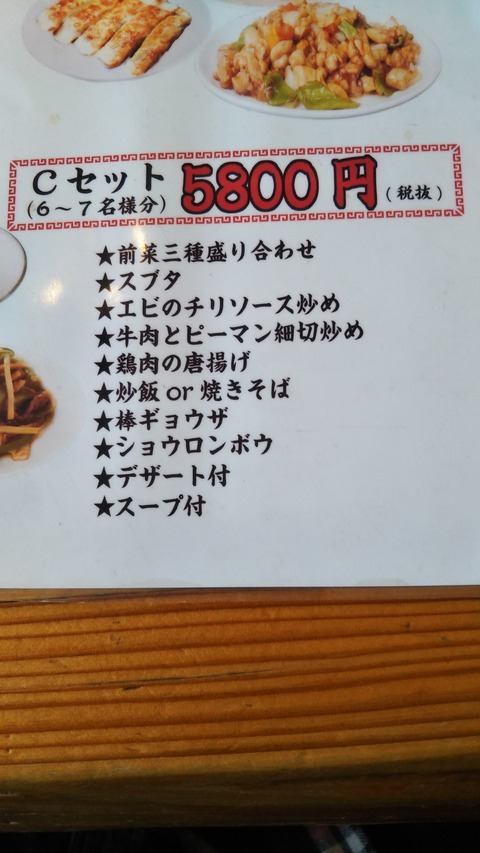 Cセット 5800円(税抜)
(6～7名様分)
★前菜三種盛り合わせ
★スブタ
★エビのチリソース炒め
★牛肉とピーマン細切炒め
★鶏肉の唐揚げ
★炒飯or焼きそば
★棒ギョウザ
★ショウロンボウ
★デザート付
★スープ付